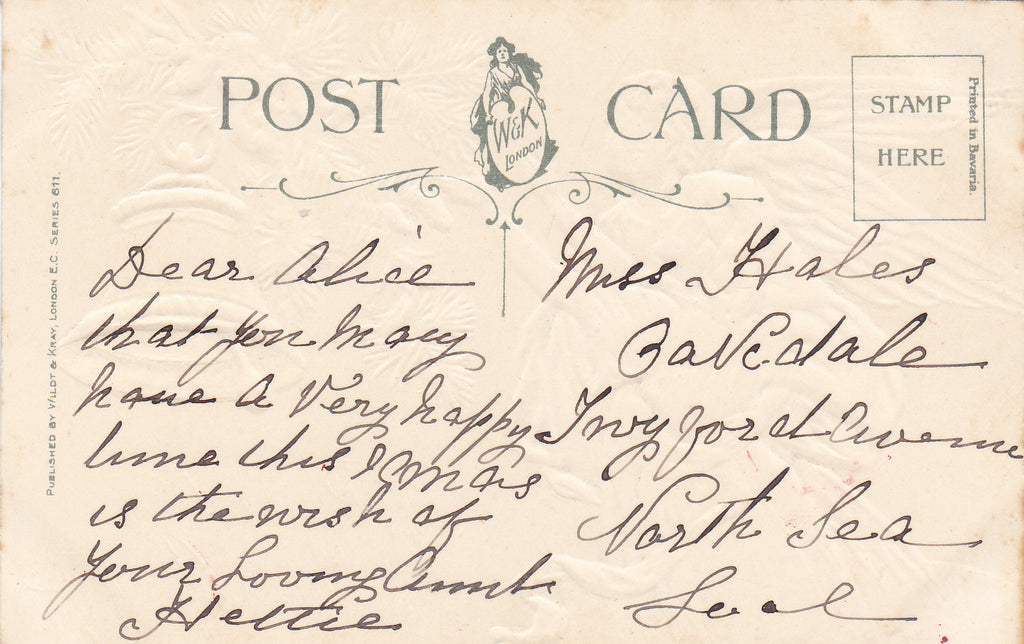 POST CARD
W&K
LONDON
STAMP
HERE
Printed in Bavaria.
PUBLISHED BY WILDT & KRAY, LONDON E.C. SERIES 611.
Dear Alice
that you may
have A Very happy
time this Xmas
is the wish of
Your Loving Aunt
Hettie
Miss Hales
Twyford Avenue
North Sea